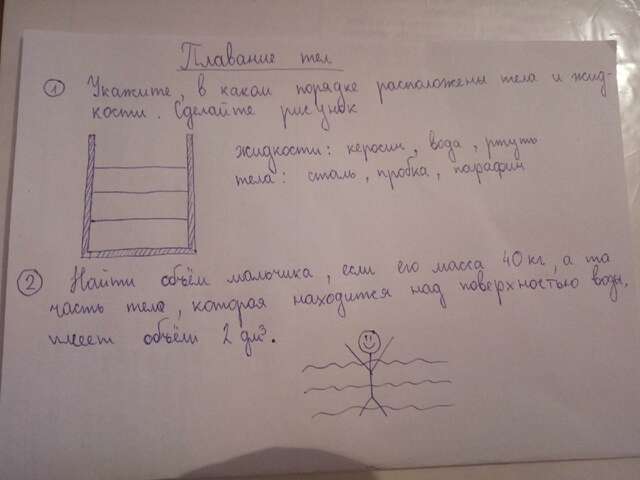 Плавание тел
① Укажите, в каком порядке расположены тела и жид-
кости. Сделайте рисунок
жидкости: керосин, вода, ртуть
тела: сталь, пробка, парафин
② Найти объём мальчика, если его масса 40 кг, а та
часть тела, которая находится над поверхностью воды,
имеет объём 2 дм³.